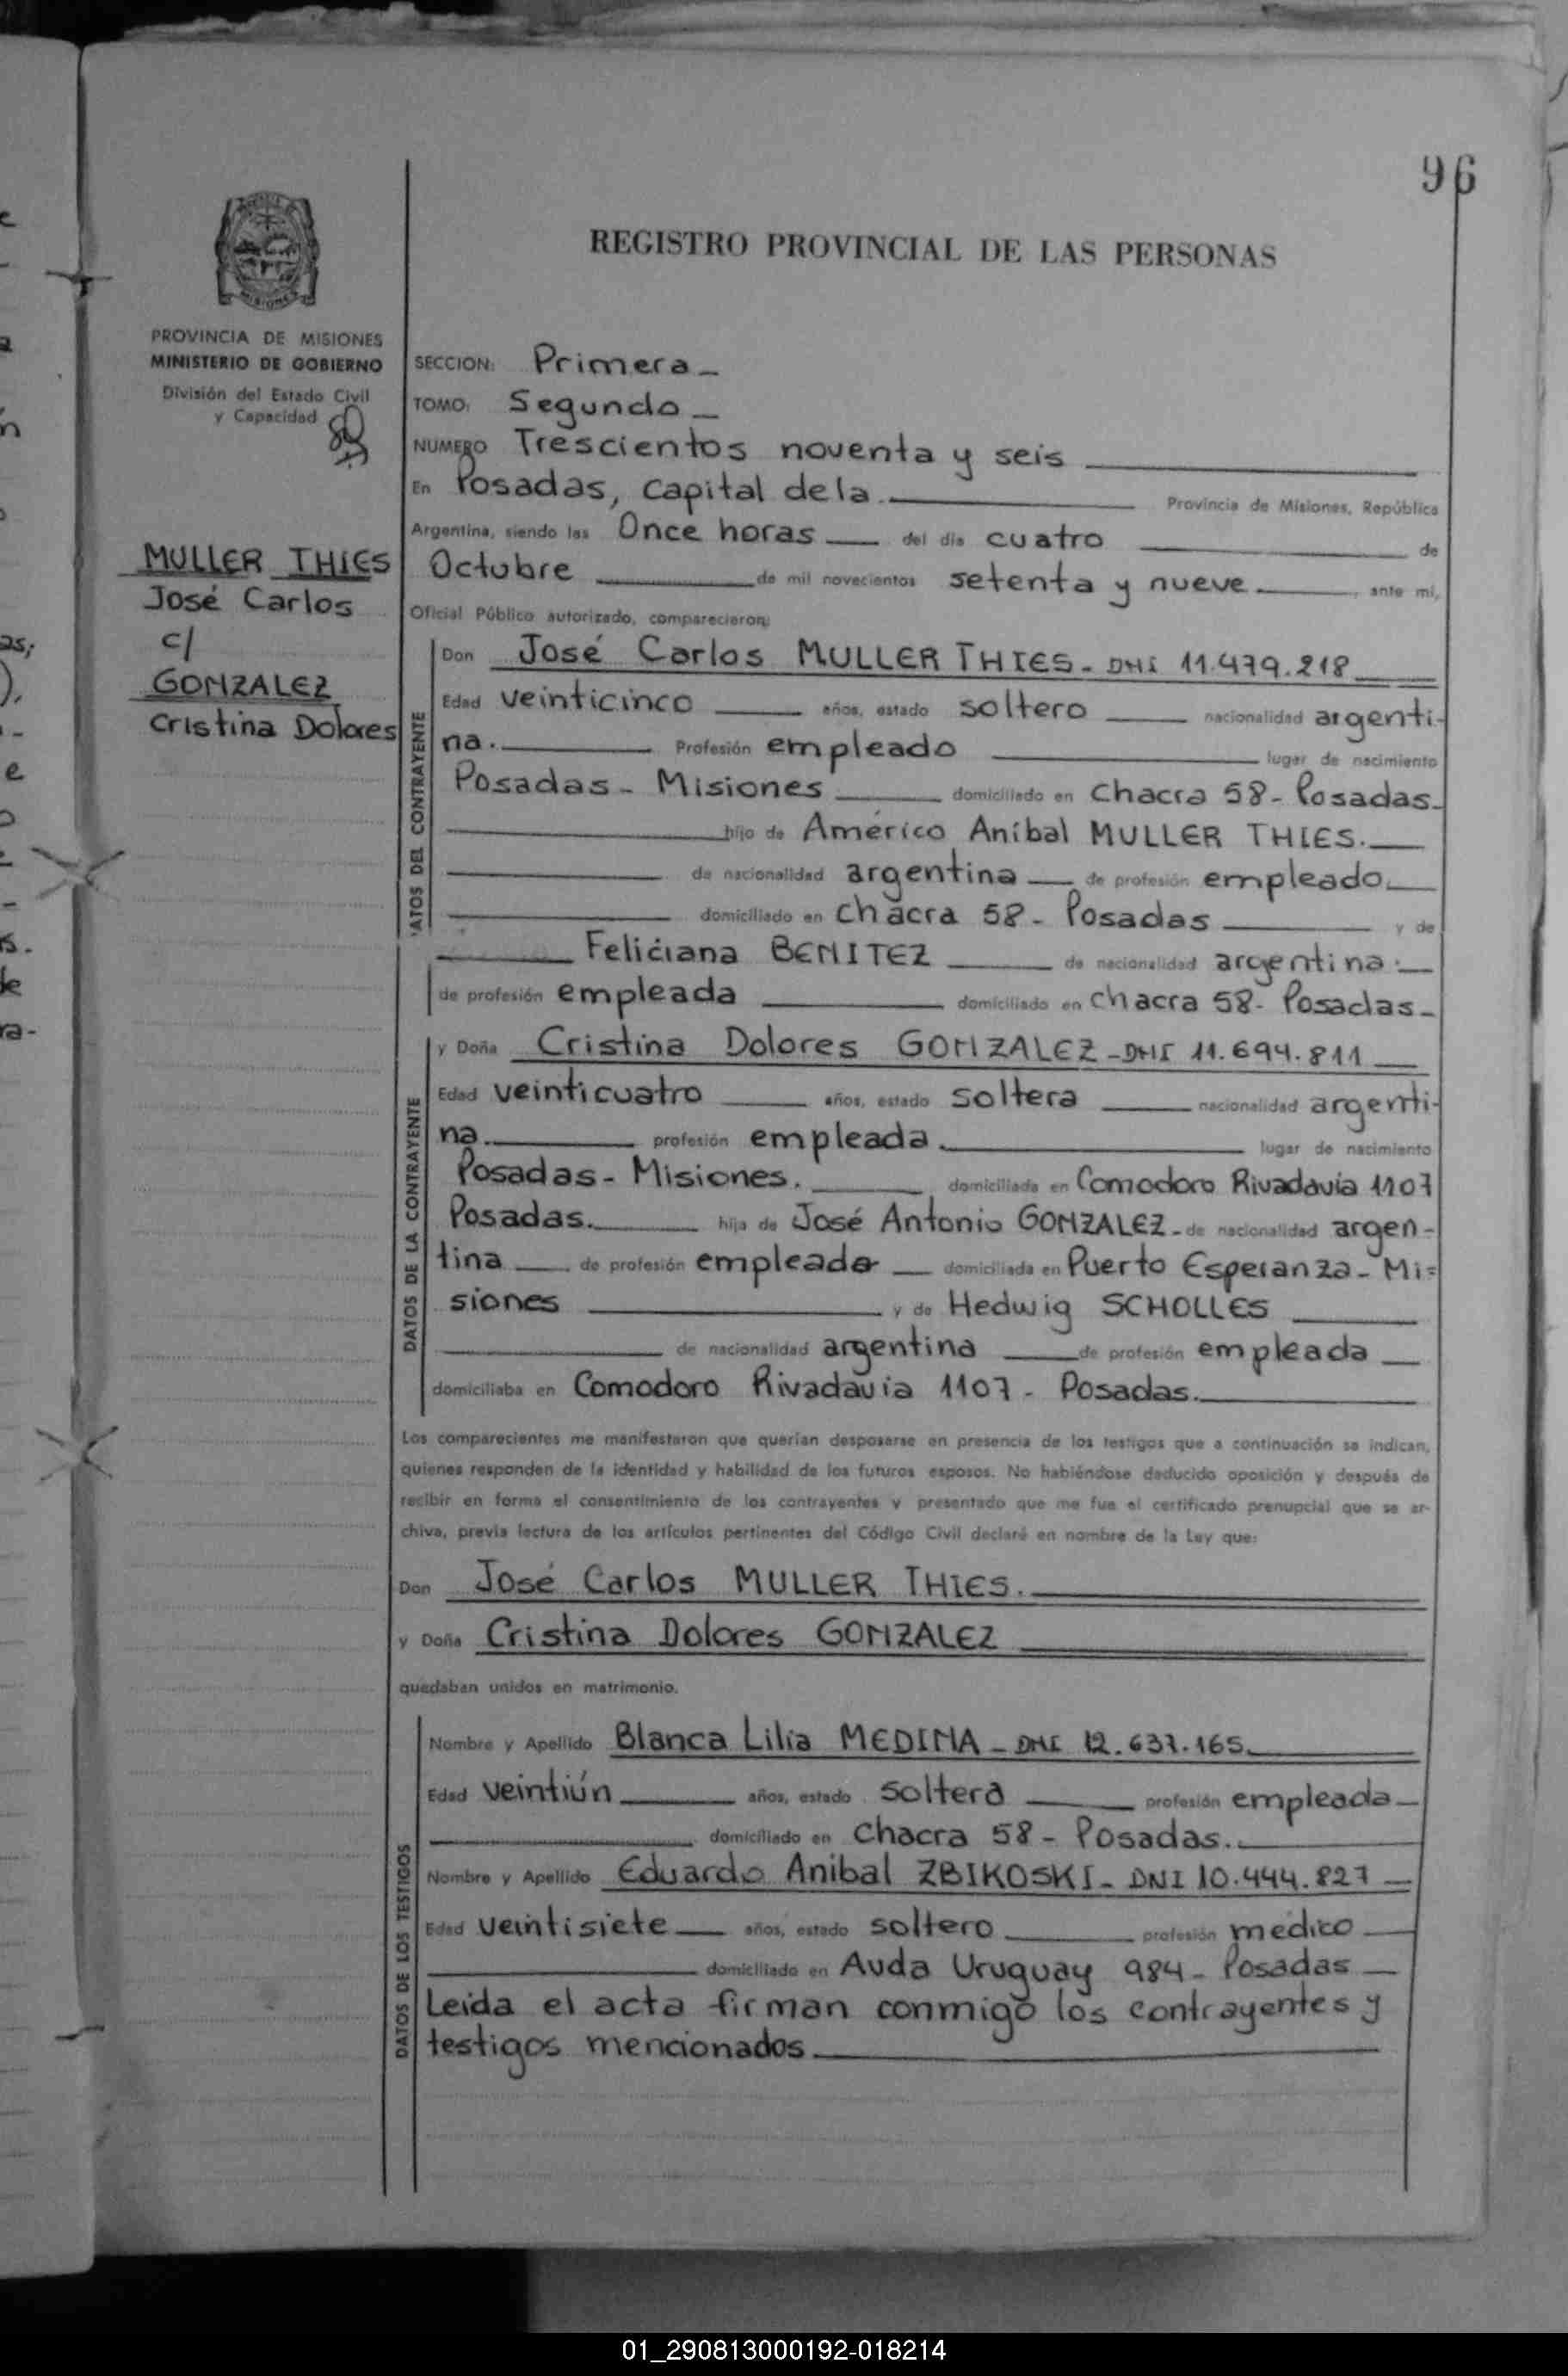 96
REGISTRO PROVINCIAL DE LAS PERSONAS
MISIONES
PROVINCIA DE MISIONES
MINISTERIO DE GOBIERNO
División del Estado Civil
y Capacidad
MULLER THIES
José Carlos
c/
GONZALEZ
Cristina Dolores
SECCION: Primera_
TOMO: Segundo_
NUMERO Trescientos noventa y seis
En Posadas, capital dela. Provincia de Misiones, República
Argentina, siendo las Once horas del día cuatro de
Octubre de mil novecientos setenta y nueve ante mí,
Oficial Público autorizado, comparecieron:
DATOS DEL CONTRAYENTE
Don José Carlos MULLER THIES - DNI 11.479.218
Edad veinticinco años, estado soltero nacionalidad argenti-
na. Profesión empleado lugar de nacimiento
Posadas - Misiones domiciliado en Chacra 58 - Posadas
hijo de Américo Aníbal MULLER THIES.
de nacionalidad argentina de profesión empleado
domiciliado en chacra 58 - Posadas y de
Feliciana BENITEZ de nacionalidad argentina.
de profesión empleada domiciliado en chacra 58 - Posadas
DATOS DE LA CONTRAYENTE
y Doña Cristina Dolores GONZALEZ - DNI 11.694.811
Edad veinticuatro años, estado soltera nacionalidad argenti-
na. profesión empleada. lugar de nacimiento
Posadas - Misiones. domiciliada en Comodoro Rivadavia 1107
Posadas. hija de José Antonio GONZALEZ - de nacionalidad argen-
tina de profesión empleado domiciliada en Puerto Esperanza - Mi=
siones y de Hedwig SCHOLLES
de nacionalidad argentina de profesión empleada
domiciliaba en Comodoro Rivadavia 1107 - Posadas.
Los comparecientes me manifestaron que querían desposarse en presencia de los testigos que a continuación se indican,
quienes responden de la identidad y habilidad de los futuros esposos. No habiéndose deducido oposición y después de
recibir en forma el consentimiento de los contrayentes y presentado que me fue el certificado prenupcial que se ar-
chiva, previa lectura de los artículos pertinentes del Código Civil declaré en nombre de la Ley que:
Don José Carlos MULLER THIES.
y Doña Cristina Dolores GONZALEZ
quedaban unidos en matrimonio.
DATOS DE LOS TESTIGOS
Nombre y Apellido Blanca Lilia MEDINA - DNI 12.637.165
Edad veintiún años, estado soltera profesión empleada
domiciliado en Chacra 58 - Posadas.
Nombre y Apellido Eduardo Anibal ZBIKOSKI - DNI 10.444.827
Edad veintisiete años, estado soltero profesión medico
domiciliado en Avda Uruguay 984 - Posadas
Leida el acta firman conmigo los contrayentes y
testigos mencionados
01_290813000192-018214